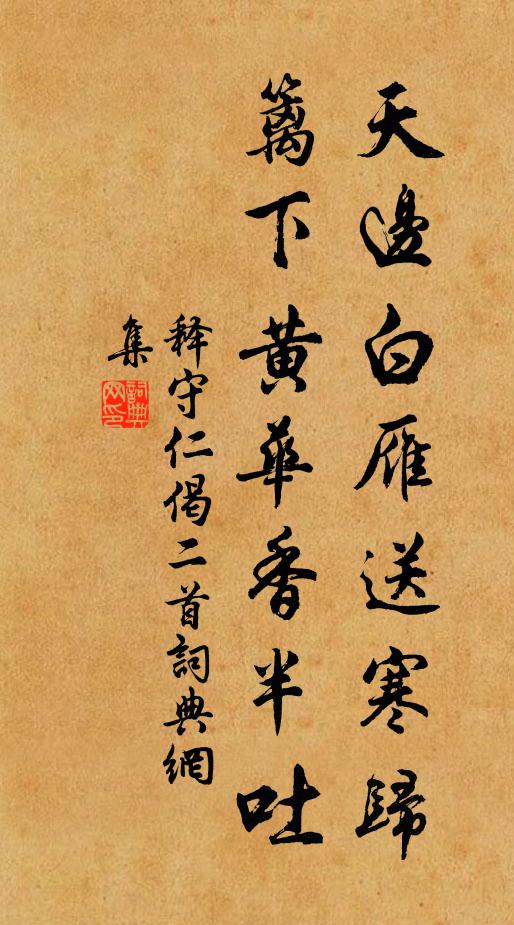 天邊白雁送寒歸
籬下黃華香半吐
释守仁偈二首詞典網
集
詞典
网印